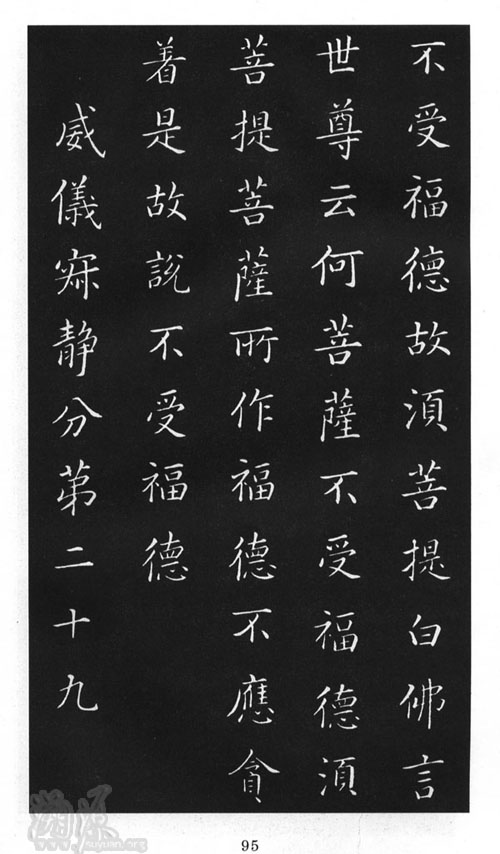 不受福德故湏菩提白佛言
世尊云何菩薩不受福德湏
菩提菩薩所作福德不應貪
着是故說不受福德
威儀寂静分苐二十九
95
www.suyuan.org